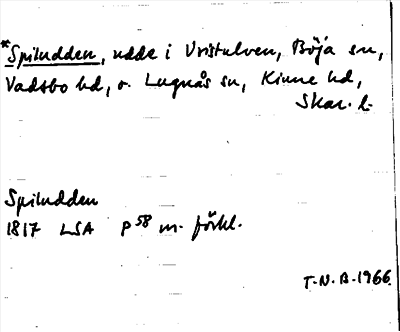 *Spiludden, udde i Vristulven, Böja sn,
Vadsbo hd, o. Lugnås sn, Kinne hd,
Skar. l.
Spiludden
1817 LSA P 58 m. förkl.
T.N.B. 1966.